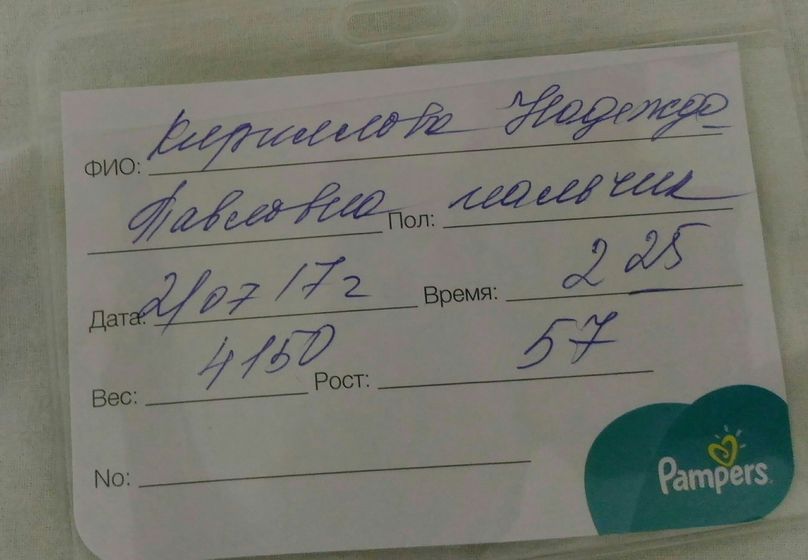 ФИО: Кириллова Надежда
Павловна Пол: мальчик
Дата: 21 07 17 г Время: 2 25
Вес: 4150 Рост: 57
No:
Pampers